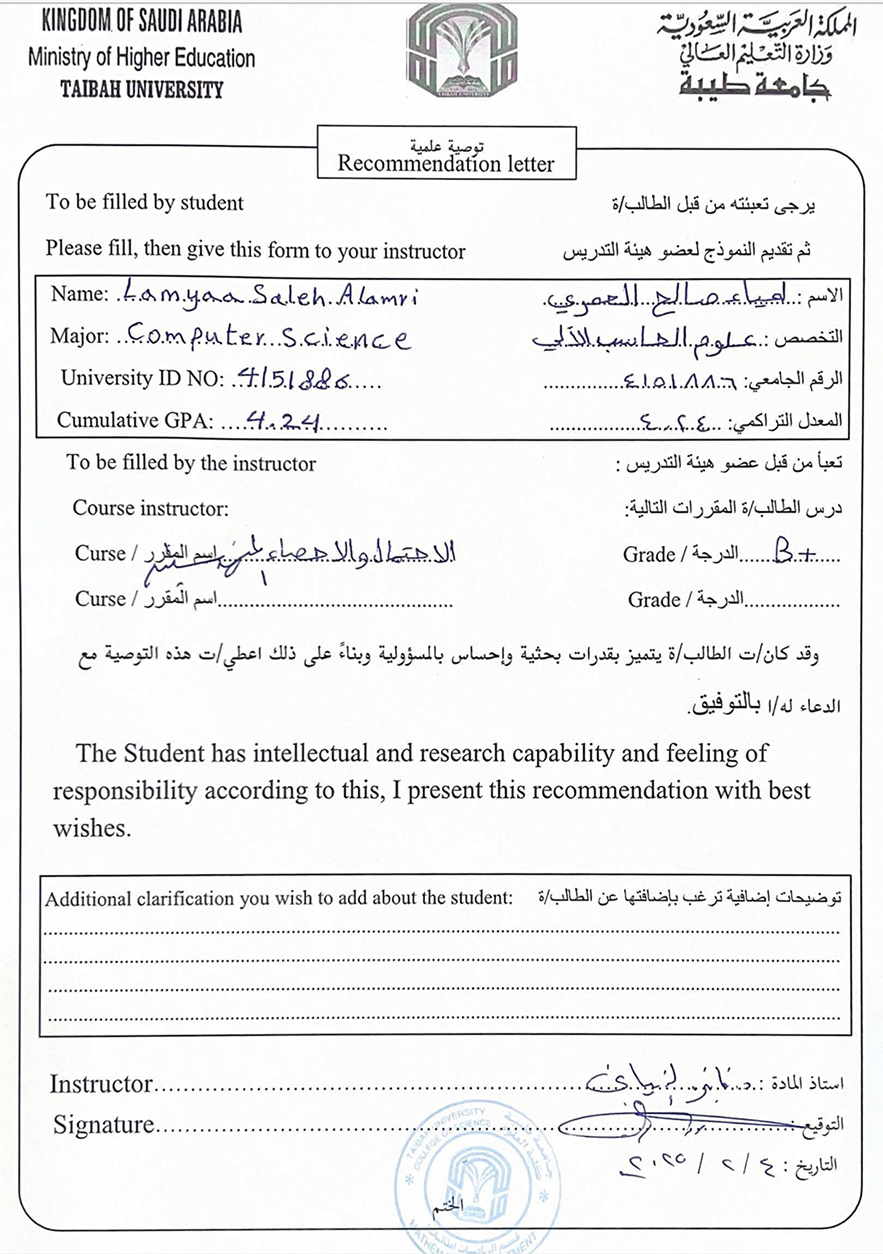 KINGDOM OF SAUDI ARABIA
Ministry of Higher Education
TAIBAH UNIVERSITY
المملكة العربية السعودية
وزارة التعليم العالي
جامعة طيبة
توصية علمية
Recommendation letter
To be filled by student يرجى تعبئته من قبل الطالب/ة
Please fill, then give this form to your instructor ثم تقديم النموذج لعضو هيئة التدريس
Name: Lamyaa Saleh Alamri الاسم : لمياء صالح العمري
Major: Computer Science التخصص : علوم الحاسب الآلي
University ID NO: 4151886 الرقم الجامعي: ٤١٥١٨٨٦
Cumulative GPA: 4.24 المعدل التراكمي: ٤.٢٤
To be filled by the instructor تعبأ من قبل عضو هيئة التدريس :
Course instructor: درس الطالب/ة المقررات التالية:
Curse / اسم المقرر الاحتمال والاحصاء Grade / الدرجة B+
Curse / اسم المقرر Grade / الدرجة
وقد كان/ت الطالب/ة يتميز بقدرات بحثية وإحساس بالمسؤولية وبناءً على ذلك اعطي/ت هذه التوصية مع
الدعاء له/ا بالتوفيق.
The Student has intellectual and research capability and feeling of
responsibility according to this, I present this recommendation with best
wishes.
Additional clarification you wish to add about the student: توضيحات إضافية ترغب بإضافتها عن الطالب/ة
Instructor استاذ المادة : د.
Signature التوقيع
التاريخ : ٤ / ٢ / ٢٠٢٥
TAIBAH UNIVERSITY
COLLEGE OF SCIENCE
الختم